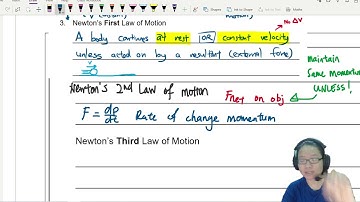 motion)
3. Newton's First Law of Motion
No ΔV
A body continues at rest [OR] constant velocity
unless acted on by a resultant (external force)
maintain
same momentum
UNLESS!
Newton's 2nd Law of motion
Fnet on obj
F = dp/dt Rate of change momentum
Newton's Third Law of Motion